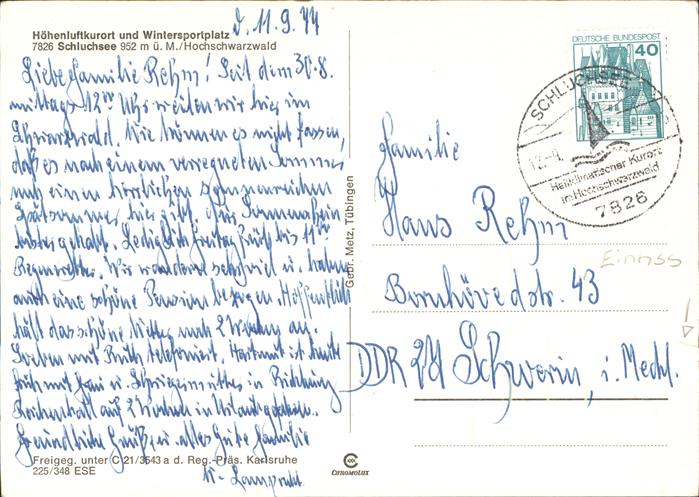 d. 11.9.77
Höhenluftkurort und Wintersportplatz
7826 Schluchsee 952 m ü. M./Hochschwarzwald
Liebe Familie Rehm! Seit dem 30.8.
mittags 12⁰⁰ Uhr weilen wir hier im
Schwarzwald. Wir können es nicht fassen,
daß es nach einem verregneten Sommer
noch einen herrlichen sonnenreichen
Spätsommer hier gibt. Nur Sonnenschein
bisher gehabt. Lediglich Freitag früh bis 11⁰⁰
Regenwetter. Wir wandern u. haben
auch eine schöne Pension bezogen. Hoffentlich
hält das schöne Wetter noch 2 Wochen an.
Soeben mit Ruth telefoniert. Hartmut ist heute
früh mit u. Schwiegermutter in Richtung
auf 2 Wochen in Urlaub gefahren.
Freundliche Grüße u. alles Gute Familie
W. Lamprecht
Freigeg. unter C 21/3543 a d. Reg.-Präs. Karlsruhe
225/348 ESE
Gebr. Metz, Tübingen
CHROMOLUX
DEUTSCHE BUNDESPOST
40
SCHLUCHSEE
Heilklimatischer Kurort
im Hochschwarzwald
7826
Familie
Hans Rehm
Einriss
Bornhövedstr. 43
DDR 27 Schwerin, i. Meckl.